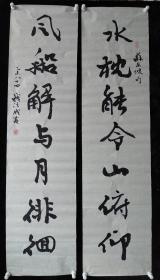 水枕能令山俯仰
风船解与月徘徊